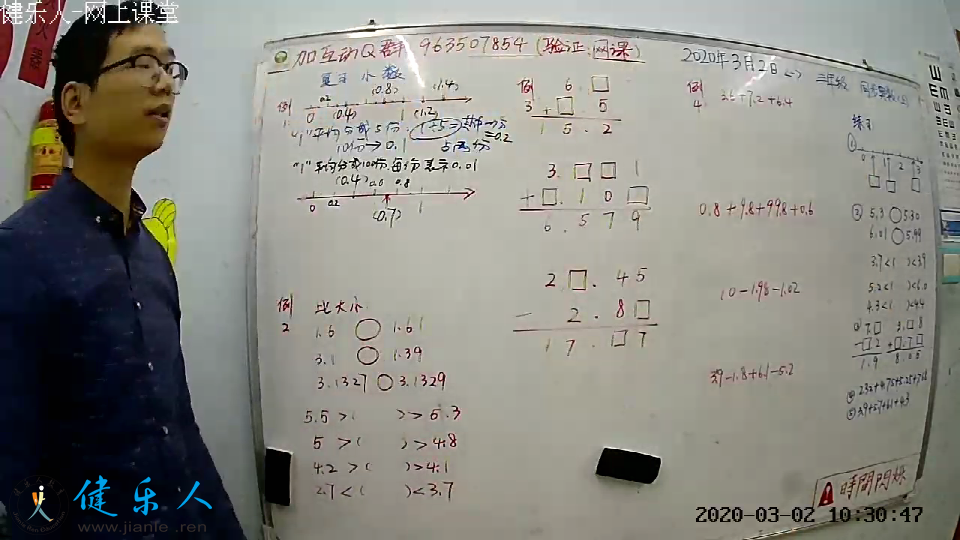 健乐人-网上课堂
加互动Q群 963507854 (验证:网课)
2020年3月2日
三年级
复习 小数
(0.8) (1.4)
例
0 (0.4) 1 (1.2)
"1"平均分成5份
10份→0.1
"1"平均分成10份,每份表示0.01
(0.4) 0.6 0.8
0 0.2 (0.7) 1
例
2
比大小
1.6 ○ 1.61
3.1 ○ 1.39
3.1327 ○ 3.1329
5.5 >( )> 5.3
5 >( )> 4.8
4.2 >( )> 4.1
2.7 <( )< 3.7
例
3
6.□
+□.5
15.2
3.□□1
+□.10□
6.579
2□.45
-2.8□
17.□7
例
4
0.8+9.8+99.8+0.6
10-1.98-1.02
39-1.8+6.1-5.2
练习
①
②
5.3 ○ 5.30
6.01 ○ 5.99
3.7<( )<3.9
5.2<( )<6.0
4.3<( )<4.4
时间闪烁
健乐人
www.jianle.ren
2020-03-02 10:30:47